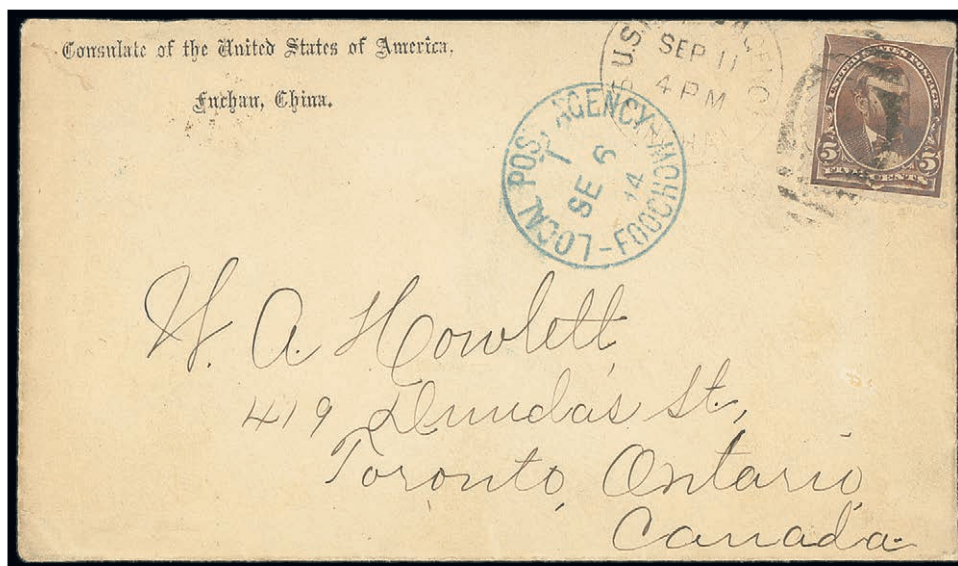 Consulate of the United States of America.
Fuchau, China.
U.S.
SEP 11
4 PM
LOCAL POST AGENCY
1
SE 6
14
-FOOCHOW-
UNITED STATES POSTAGE
5 5
FIVE CENTS
W. A. Howlett
419 Dundas St,
Toronto, Ontario
Canada.